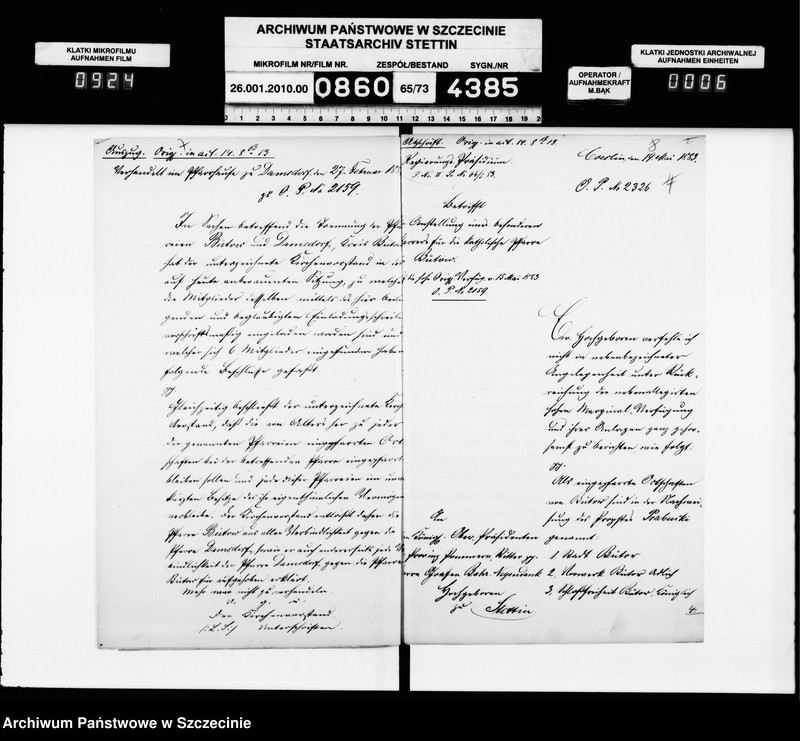 ARCHIWUM PAŃSTWOWE W SZCZECINIE
STAATSARCHIV STETTIN
KLATKI MIKROFILMU
AUFNAHMEN FILM
0924
MIKROFILM NR/FILM NR. ZESPÓŁ/BESTAND SYGN./NR
26.001.2010.00 0860 65/73 4385
OPERATOR /
AUFNAHMEKRAFT
M.BĄK
KLATKI JEDNOSTKI ARCHIWALNEJ
AUFNAHMEN EINHEITEN
0006
0 1 2 3 4 5 6 7 8 9 10 11 12 13 14 15 16 17 18 19 2
Auszug. Orig. in act. 14. 8 13
Verhandelt im Pfarrhause zu Damsdorf, den 27. Februar
zu O. P. No 2159.
In Sachen betreffend die Trennung der
Bütow und Damsdorf, Kreis
hat der unterzeichnete Kirchenvorstand in der
auf heute anberaumten Sitzung, zu welcher
die Mitglieder desselben mittels der hier
genden und beglaubigten Einladungsschreiben
vorschriftsmäßig eingeladen worden sind und
welcher sich 6 Mitglieder eingefunden haben
folgende Beschlüsse gefaßt
Gleichzeitig beschließt der unterzeichnete
vorstand, daß die von Alters her zu jeder
der genannten Pfarreien eingepfarrten
schaften bei der betreffenden Pfarre eingepfarrt
bleiben sollen und jede dieser Pfarreien im
Besitze des ihr eigenthümlichen Vermögens
verbleibe. Der Kirchenvorstand entläßt daher die
Pfarre Bütow aus aller Verbindlichkeit gegen die
Pfarre Damsdorf, sowie er auch andererseits jede
bindlichkeit der Pfarre Damsdorf gegen die Pfarre
Bütow für aufgehoben erklärt.
Mehr war nicht zu verhandeln.
v. g. u.
Der Kirchenvorstand
(:L.S:) Unterschriften.
Abschrift. Orig. in act. 14. 8 13.
Regierungs Präsidium
8
Coeslin, den 19. Mai 1883.
O. P. No 2326
Betrifft
Anstellung eines besonderen
für die katholische Pfarre
Bütow.
Verfüg. v. 15. Mai 1883
O. P. No 2159.
Ew. Hochgeboren verfehle ich
nicht in nebenbezeichneter
Angelegenheit unter Rück-
reichung der nebenallegirten
hohen Marginal-Verfügung
und ihrer Anlagen ganz gehor-
samst zu berichten wie folgt.
Als eingepfarrte Ortschaften
von Bütow sind in der Nachwei-
sung des Propstes Prabucki
genannt:
1. Stadt Bütow
2. Vorwerk Bütow Adlich
3. Schloßfreiheit Bütow, Königlich
4.
An
Königl. Ober-Präsidenten
Provinz Pommern, Ritter pp.
Grafen Behr-Negendank
Hochgeboren
zu Stettin
Archiwum Państwowe w Szczecinie